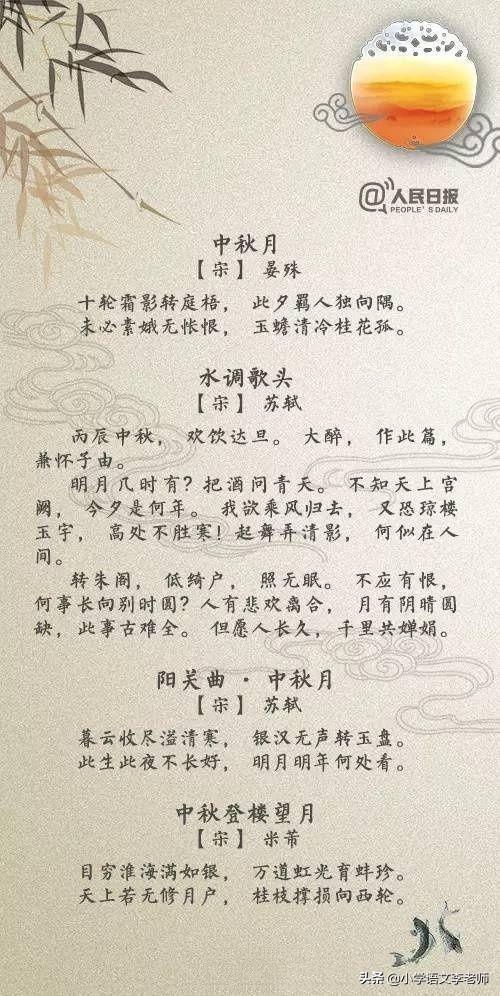 @人民日报
PEOPLE'S DAILY
中秋月
【宋】 晏殊
十轮霜影转庭梧， 此夕羁人独向隅。
未必素娥无怅恨， 玉蟾清冷桂花孤。
水调歌头
【宋】 苏轼
丙辰中秋， 欢饮达旦。 大醉， 作此篇，
兼怀子由。
明月几时有？把酒问青天。 不知天上宫
阙， 今夕是何年。 我欲乘风归去， 又恐琼楼
玉宇， 高处不胜寒！起舞弄清影， 何似在人
间。
转朱阁， 低绮户， 照无眠。 不应有恨，
何事长向别时圆？人有悲欢离合， 月有阴晴圆
缺，此事古难全。 但愿人长久，千里共婵娟。
阳关曲 · 中秋月
【宋】 苏轼
暮云收尽溢清寒， 银汉无声转玉盘。
此生此夜不长好， 明月明年何处看。
中秋登楼望月
【宋】 米芾
目穷淮海满如银， 万道虹光育蚌珍。
天上若无修月户， 桂枝撑损向西轮。
头条 @小学语文李老师